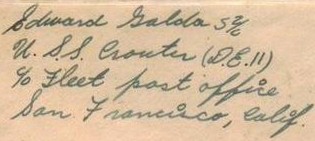 Edward Galda S 2/c
U. S.S. Crouter (D.E. 11)
c/o Fleet post office
San Francisco, Calif.